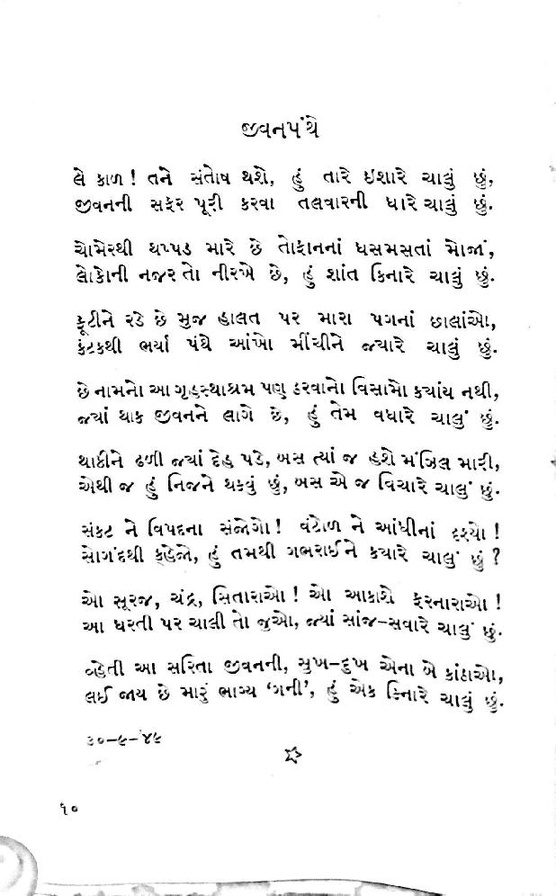 જીવનપંથે
લે કાળ ! તને સંતોષ થશે, હું તારે ઇશારે ચાલું છું,
જીવનની સફર પૂરી કરવા તલવારની ધારે ચાલું છું.
ચોમેરથી થપ્પડ મારે છે તોફાનનાં ધસમસતાં મોજાં,
લોકોની નજર તો નીરખે છે, હું શાંત કિનારે ચાલું છું.
ફૂટીને રડે છે મુજ હાલત પર મારા પગનાં છાલાંઓ,
કંટકથી ભર્યા પંથે આંખો મીંચીને જ્યારે ચાલું છું.
છે નામનો આ ગૃહસ્થાશ્રમ પણ ઠરવાનો વિસામો કયાંય નથી,
જ્યાં થાક જીવનને લાગે છે, હું તેમ વધારે ચાલું છું.
થાકીને ઢળી જ્યાં દેહ પડે, બસ ત્યાં જ હશે મંઝિલ મારી,
એથી જ હું નિજને થકવું છું, બસ એ જ વિચારે ચાલું છું.
સંકટ ને વિપદના સંજોગો ! વંટોળ ને આંધીનાં દૃશ્યો !
સોગંદથી કહેજો, હું તમથી ગભરાઈને કયારે ચાલું છું ?
ઓ સૂરજ, ચંદ્ર, સિતારાઓ ! ઓ આકાશે ફરનારાઓ !
આ ધરતી પર ચાલી તો જુઓ, જ્યાં સાંજ-સવારે ચાલું છું.
વ્હેતી આ સરિતા જીવનની, સુખ-દુખ એના બે કાંઠાઓ,
લઈ જાય છે મારું ભાગ્ય ‘ગની’, હું એક કિનારે ચાલું છું.
૩૦-૯-’૪૯
૧૦